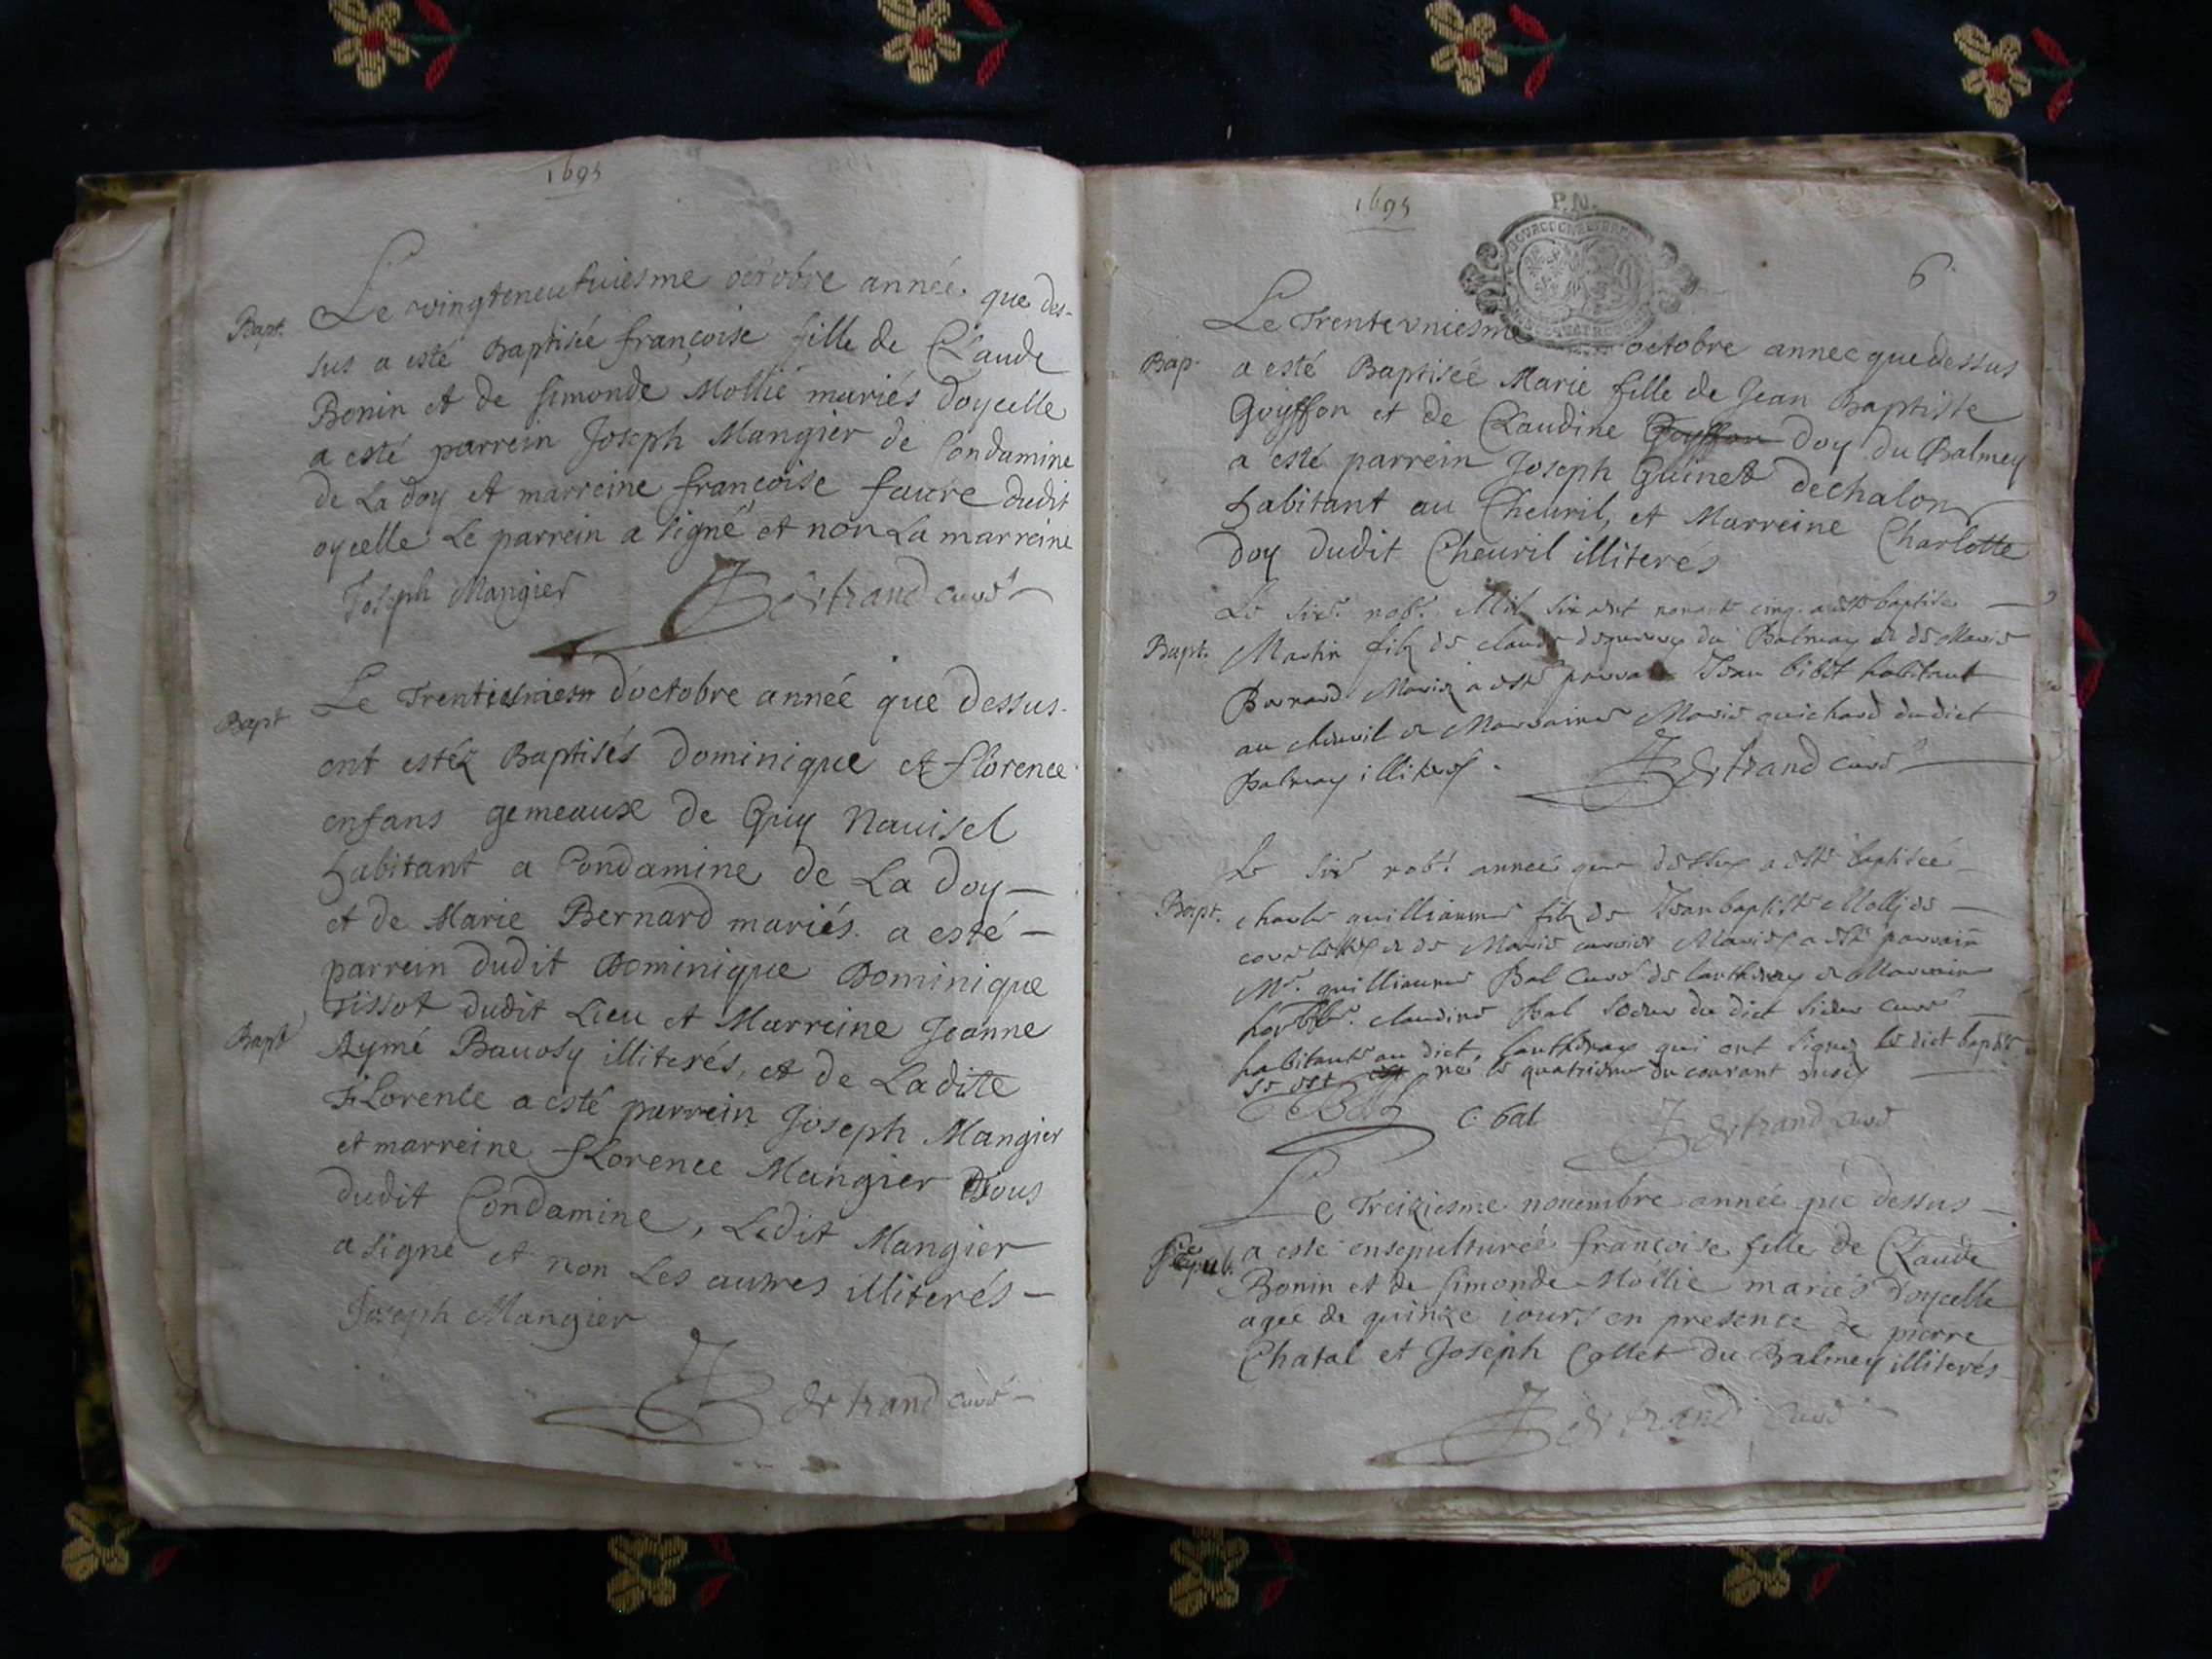 1695
Bapt.
Le vingtneufuiesme octobre année que des-
sus a esté Baptisée françoise fille de Claude
Bonin et de simonde Mollié mariés doycelle
a esté parrein Joseph Mangier de Condamine
de La doy et marreine françoise faure dudit
oycelle Le parrein a signé et non La marreine
Joseph Mangier Bertrand curé
Bapt
Le Trentiesme doctobre année que dessus
ont estéz Baptisés Dominique et florence
enfans gemeaux de Guy Nauisel
habitant a Condamine de La Doy
et de Marie Bernard mariés a esté
parrein dudit Dominique Dominique
Tissot dudit Lieu et Marreine Jeanne
Bapt
Aymé Bauosy illiterés, et de Ladite
Florence a esté parrein Joseph Mangier
et marreine fLorence Mangier Tous
dudit Condamine, Ledit Mangier
a signé et non Les autres illiterés
Joseph Mangier
Bertrand curé
1695
P.N.
6
Bap.
Le Trentevniesme octobre année que dessus
a esté Baptiseé Marie fille de Jean Baptiste
Goyffon et de Claudine Goyffon Doy du Balmey
a esté parrein Joseph Guinet de chalon
habitant au Cheuril, et Marreine Charlotte
Doy dudit Cheuril illiterés
Bapt.
Le six. nob. Mil six cent nonante cinq a esté baptise
Martin filz de claude du Balmay et de Marie
Bernard Mariez a esté parrain Jean bibet habitant
au cheuril et Marraine Marie guichard dudict
Balmay illiteres.
Bertrand curé
Bapt.
Le six nob. année que dessus a esté baptisée
charle guilliaume filz de Jean baptiste Mollie de
et de Marie Mariés a esté parrain
Mr. guilliaume Bal curé de et Marraine
claudine Bal soeur du dict sieur curé
habitante au dict, qui ont signez le dict baptisé
est né le quatriesme du courant
C. bal Bertrand curé
Sepul.
Le Treiziesme nouembre année que dessus
a esté ensepulturée françoise fille de Claude
Bonin et de simonde Mollie mariés doycelle
agée de quinze iours en presence de pierre
Chatal et Joseph Collet du Balmey illiterés
Bertrand curé